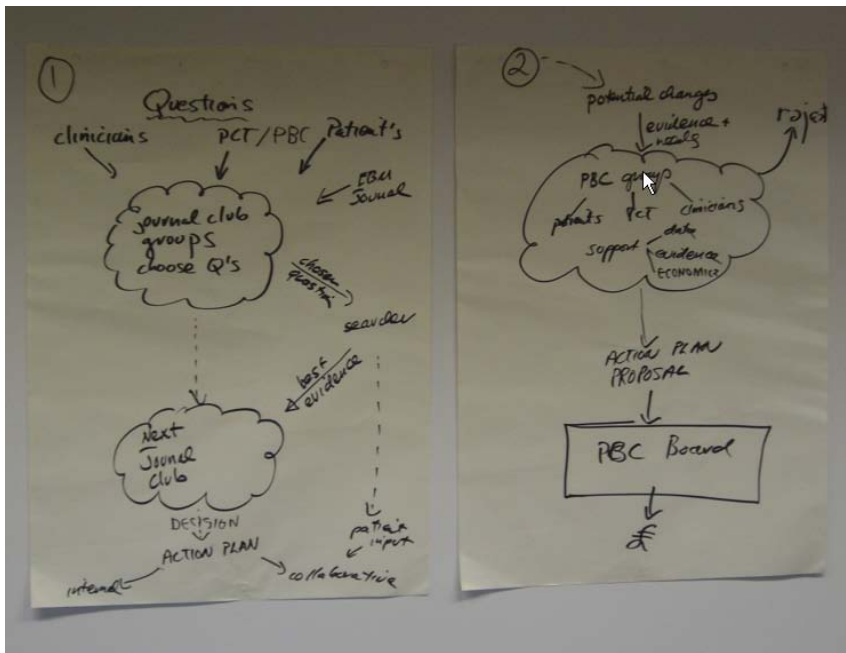 1
Questions
clinicians
PCT/PBC
Patient's
EBM
Journal
journal club
groups
choose Q's
chosen
question
searcher
best
evidence
Next
Journal
club
DECISION
ACTION PLAN
patient
input
internal
collaborative
2
potential changes
evidence +
needs
reject
PBC group
patients
PCT
clinicians
support
data
evidence
ECONOMICS
ACTION PLAN
PROPOSAL
PBC Board
£